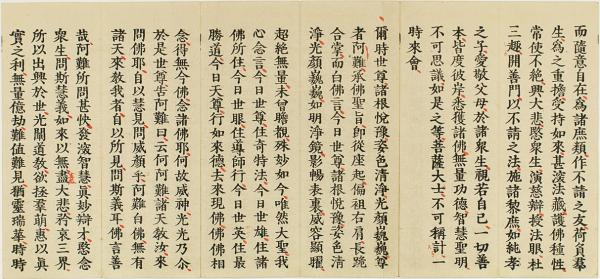 而隨意自在為諸庶類作不請之友荷負羣
生為之重擔受持如來甚深法藏護佛種性
常使不絕興大悲愍眾生演慈辯授法眼杜
三趣開善門以不請之法施諸黎庶如純孝
之子愛敬父母於諸眾生視若自己一切善
本皆度彼岸悉獲諸佛無量功德智慧聖明
不可思議如是之等菩薩大士不可稱計一
時來會
爾時世尊諸根悅豫姿色清淨光顏巍巍尊
者阿難承佛聖旨即從座起偏袒右肩長跪
合掌而白佛言今日世尊諸根悅豫姿色清
淨光顏巍巍如明淨鏡影暢表裏威容顯曜
超絕無量未曾瞻覩殊妙如今唯然大聖我
心念言今日世尊住奇特法今日世雄住諸
佛所住今日世眼住導師行今日世英住最
勝道今日天尊行如來德去來現佛佛佛相
念得無今佛念諸佛耶何故威神光光乃尒
於是世尊告阿難曰云何阿難諸天教汝來
問佛耶自以慧見問威顏乎阿難白佛無有
諸天來教我者自以所見問斯義耳佛言善
哉阿難所問甚快發深智慧真妙辯才愍念
眾生問斯慧義如來以無盡大悲矜哀三界
所以出興於世光闡道教欲拯羣萌惠以真
實之利無量億劫難值難見猶靈瑞華時時